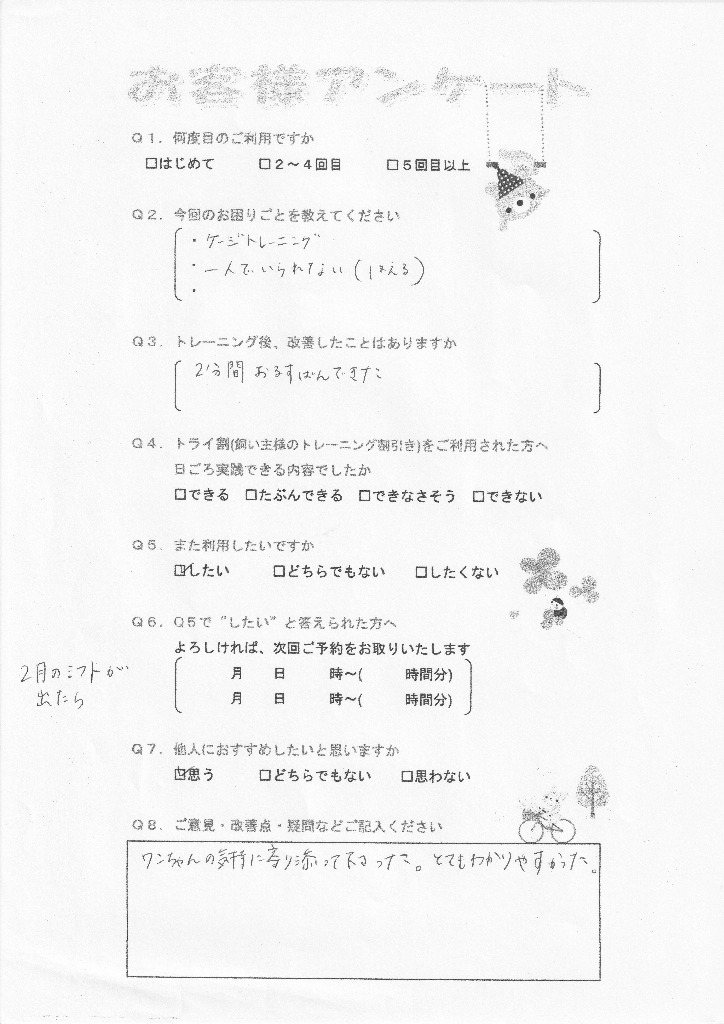 お客様アンケート
Q1．何度目のご利用ですか
□はじめて □2～4回目 □5回目以上
Q2．今回のお困りごとを教えてください
・ケージトレーニング
・一人でいられない（ほえる）
・
Q3．トレーニング後、改善したことはありますか
2分間 おるすばんできた
Q4．トライ割(飼い主様のトレーニング割引き)をご利用された方へ
日ごろ実践できる内容でしたか
□できる □たぶんできる □できなさそう □できない
Q5．また利用したいですか
☑したい □どちらでもない □したくない
Q6．Q5で“したい”と答えられた方へ
よろしければ、次回ご予約をお取りいたします
月 日 時～( 時間分)
月 日 時～( 時間分)
2月のシフトが
出たら
Q7．他人におすすめしたいと思いますか
☑思う □どちらでもない □思わない
Q8．ご意見・改善点・疑問などご記入ください
ワンちゃんの気持に寄り添って下さった。とてもわかりやすかった。